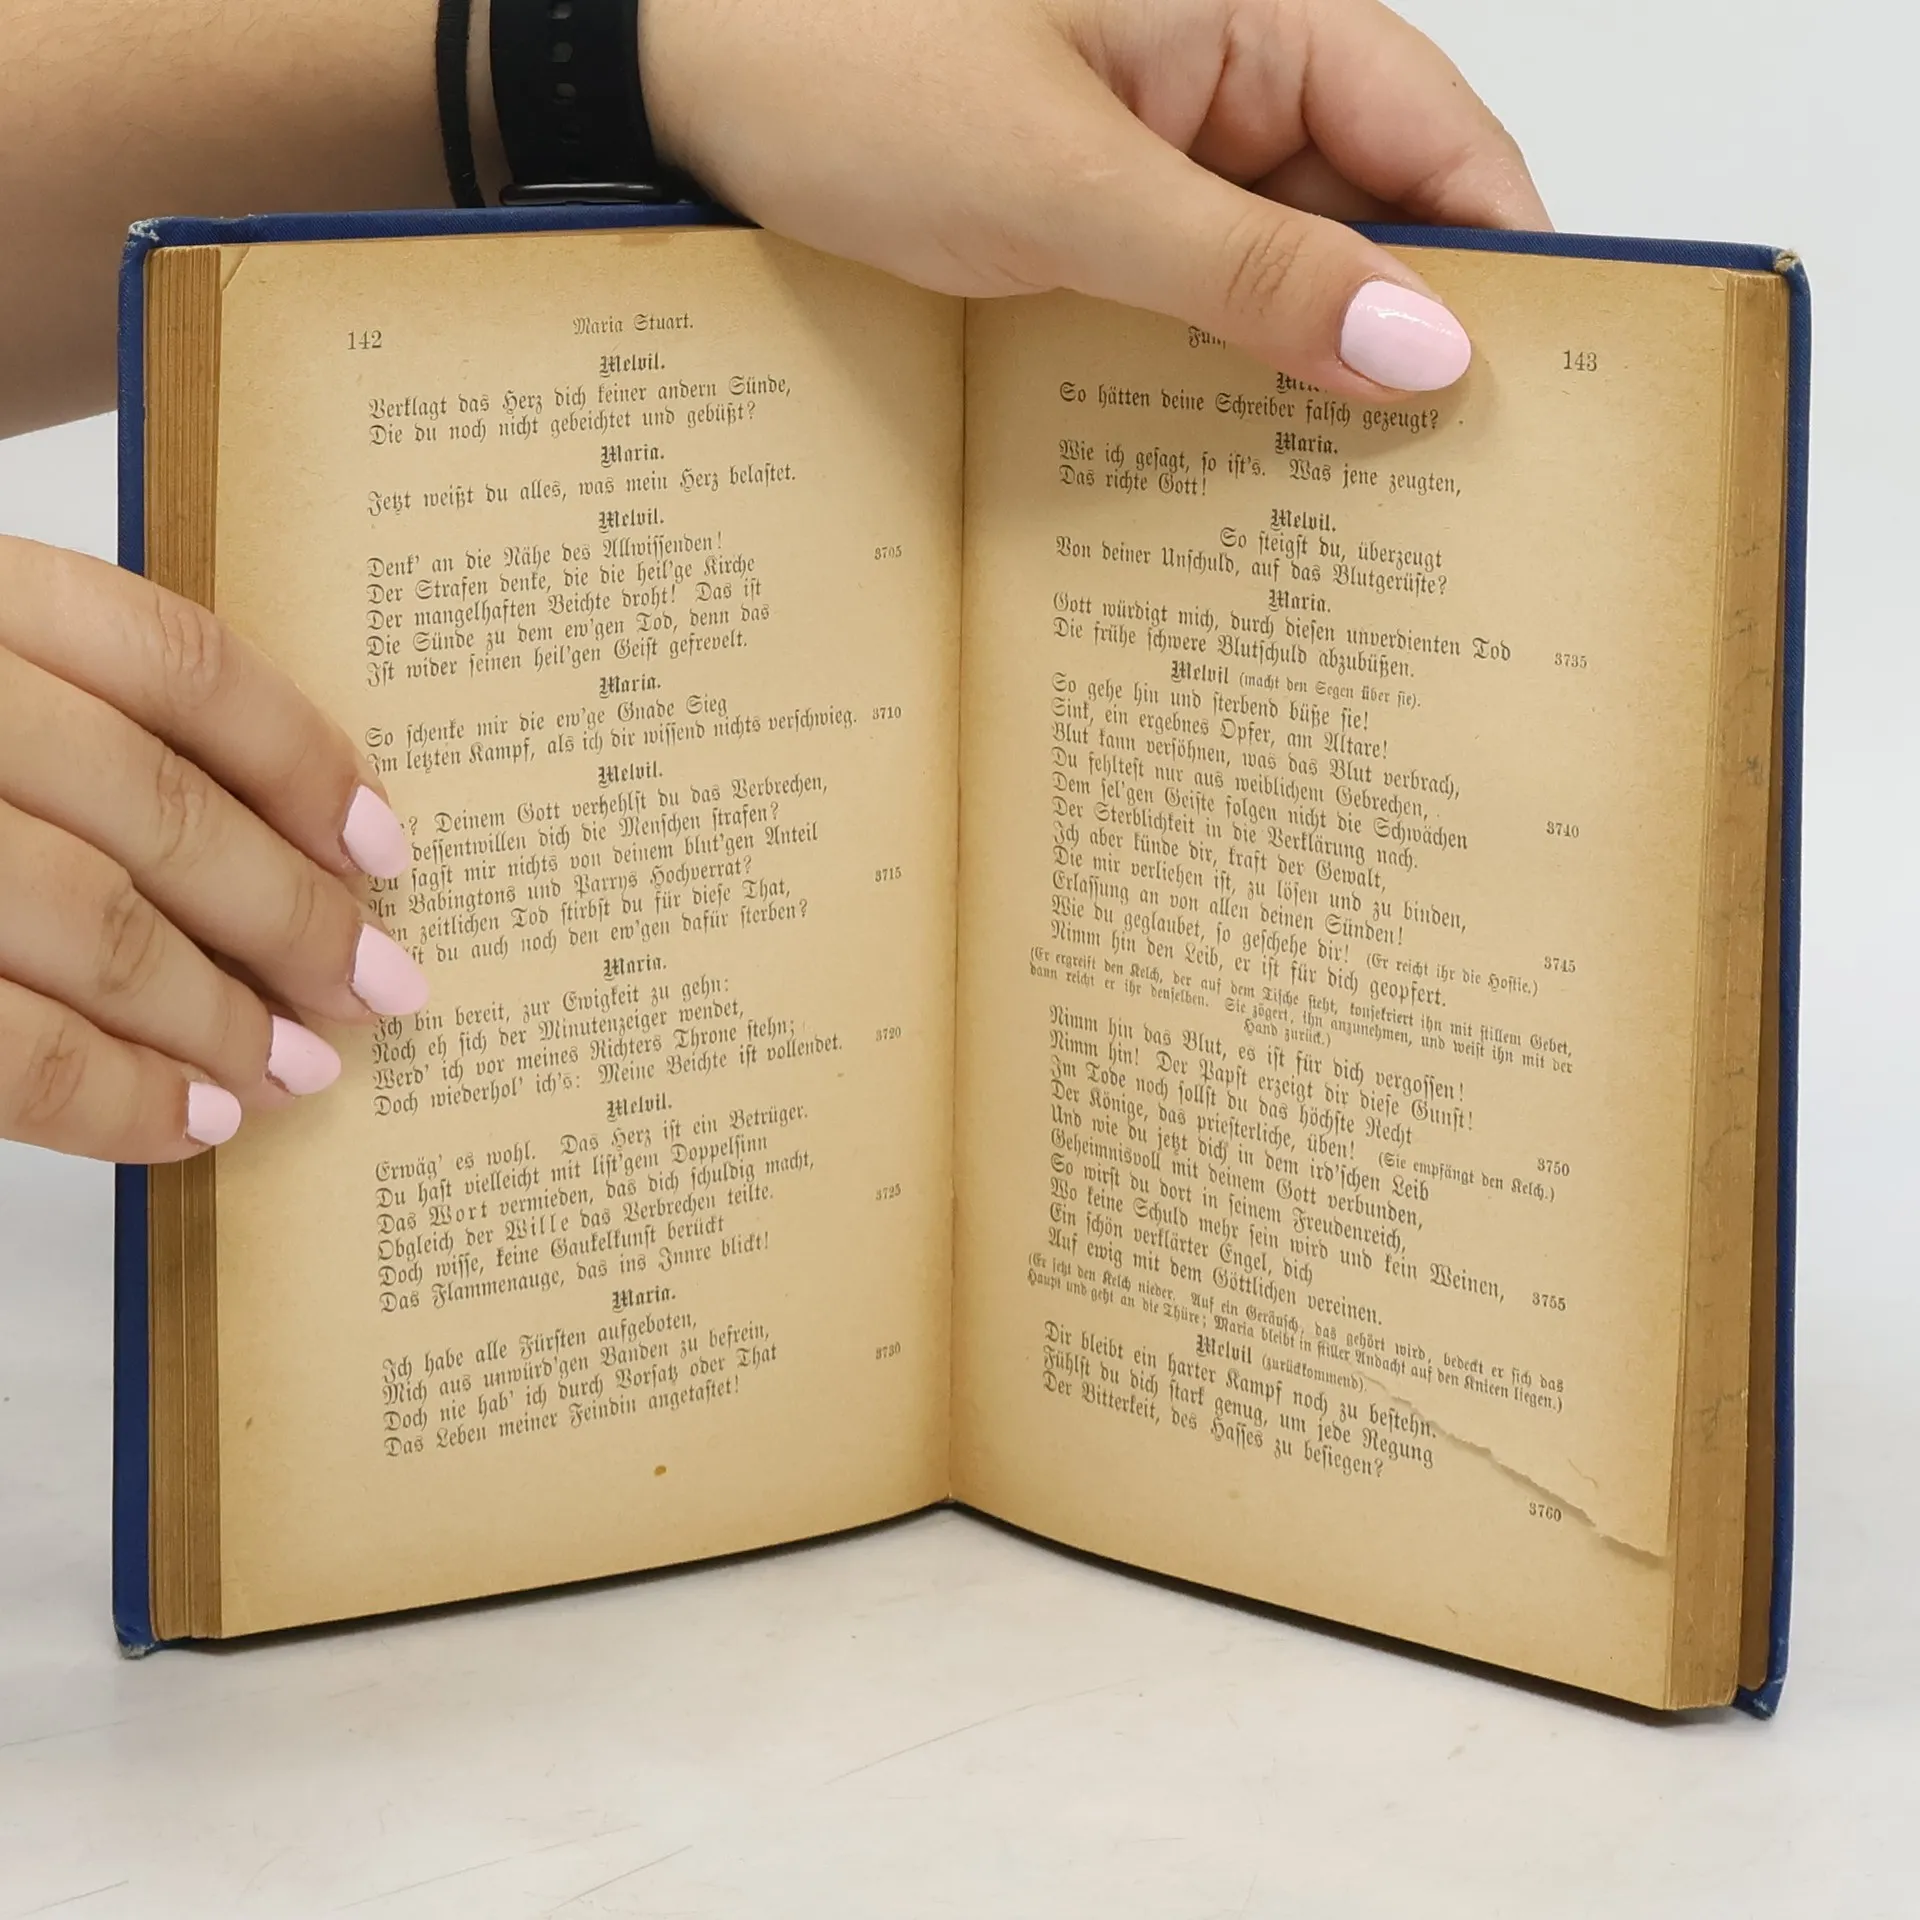 142
Maria Stuart.
Melvil.
Verklagt das Herz dich keiner andern Sünde,
Die du noch nicht gebeichtet und gebüßt?
Maria.
Jetzt weißt du alles, was mein Herz belastet.
Melvil.
Denk' an die Nähe des Allwissenden! 3705
Der Strafen denke, die die heil'ge Kirche
Der mangelhaften Beichte droht! Das ist
Die Sünde zu dem ew'gen Tod, denn das
Ist wider seinen heil'gen Geist gefrevelt.
Maria.
So schenke mir die ew'ge Gnade Sieg 3710
Im letzten Kampf, als ich dir wissend nichts verschwieg.
Melvil.
Deinem Gott verhehlst du das Verbrechen,
dessentwillen dich die Menschen strafen?
Du sagst mir nichts von deinem blut'gen Anteil
An Babingtons und Parrys Hochverrat? 3715
zeitlichen Tod stirbst du für diese That,
du auch noch den ew'gen dafür sterben?
Maria.
Ich bin bereit, zur Ewigkeit zu gehn:
Noch eh sich der Minutenzeiger wendet,
Werd' ich vor meines Richters Throne stehn; 3720
Doch wiederhol' ich's: Meine Beichte ist vollendet.
Melvil.
Erwäg' es wohl. Das Herz ist ein Betrüger.
Du hast vielleicht mit list'gem Doppelsinn
Das Wort vermieden, das dich schuldig macht,
Obgleich der Wille das Verbrechen teilte. 3725
Doch wisse, keine Gaukelkunst berückt
Das Flammenauge, das ins Innre blickt!
Maria.
Ich habe alle Fürsten aufgeboten,
Mich aus unwürd'gen Banden zu befrein,
Doch nie hab' ich durch Vorsatz oder That 3730
Das Leben meiner Feindin angetastet!
143
So hätten deine Schreiber falsch gezeugt?
Maria.
Wie ich gesagt, so ist's. Was jene zeugten,
Das richte Gott!
Melvil.
So steigst du, überzeugt
Von deiner Unschuld, auf das Blutgerüste?
Maria.
Gott würdigt mich, durch diesen unverdienten Tod 3735
Die frühe schwere Blutschuld abzubüßen.
Melvil (macht den Segen über sie).
So gehe hin und sterbend büße sie!
Sink, ein ergebnes Opfer, am Altare!
Blut kann versöhnen, was das Blut verbrach,
Du fehltest nur aus weiblichem Gebrechen, 3740
Dem sel'gen Geiste folgen nicht die Schwächen
Der Sterblichkeit in die Verklärung nach.
Ich aber künde dir, kraft der Gewalt,
Die mir verliehen ist, zu lösen und zu binden,
Erlassung an von allen deinen Sünden! 3745
Wie du geglaubet, so geschehe dir! (Er reicht ihr die Hostie.)
Nimm hin den Leib, er ist für dich geopfert.
(Er ergreift den Kelch, der auf dem Tische steht, konsekriert ihn mit stillem Gebet,
dann reicht er ihr denselben. Sie zögert, ihn anzunehmen, und weist ihn mit der
Hand zurück.)
Nimm hin das Blut, es ist für dich vergossen!
Nimm hin! Der Papst erzeigt dir diese Gunst!
Im Tode noch sollst du das höchste Recht 3750
Der Könige, das priesterliche, üben! (Sie empfängt den Kelch.)
Und wie du jetzt dich in dem ird'schen Leib
Geheimnisvoll mit deinem Gott verbunden,
So wirst du dort in seinem Freudenreich,
Wo keine Schuld mehr sein wird und kein Weinen, 3755
Ein schön verklärter Engel, dich
Auf ewig mit dem Göttlichen vereinen.
(Er setzt den Kelch nieder. Auf ein Geräusch, das gehört wird, bedeckt er sich das
Haupt und geht an die Thüre; Maria bleibt in stiller Andacht auf den Knieen liegen.)
Melvil (zurückkommend).
Dir bleibt ein harter Kampf noch zu bestehn.
Fühlst du dich stark genug, um jede Regung
Der Bitterkeit, des Hasses zu besiegen? 3760